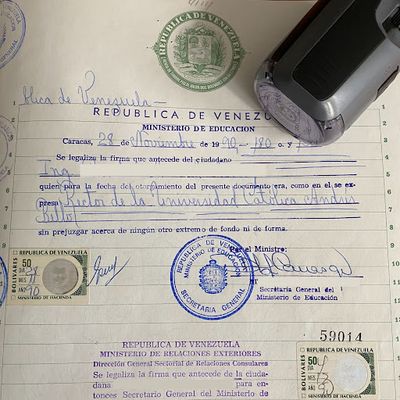 REPUBLICA DE VENEZUELA
lica de Venezuela-
REPUBLICA DE VENEZU
MINISTERIO DE EDUCACION
Caracas, 28 de Noviembre de 1990.- 180 o. y
Se legaliza la firma que antecede del ciudadano
Ing.
quien para la fecha del otorgamiento del presente documento era, como en él se ex-
presa Rector de la Universidad Católica Andrés
Bello
sin prejuzgar acerca de ningún otro extremo de fondo ni de forma.
Por el Ministro:
REPUBLICA DE VENEZUELA
MINISTERIO DE EDUCACION
SECRETARIA GENERAL
Secretaria General del
Ministerio de Educación
REPUBLICA DE VENEZUELA
50
BOLIVARES
DIA
MES
AÑO
90
MINISTERIO DE HACIENDA
59014
REPUBLICA DE VENEZUELA
MINISTERIO DE RELACIONES EXTERIORES
Dirección General Sectorial de Relaciones Consulares
Se legaliza la firma que antecede de la ciuda-
dana para en-
tonces Secretario General del Ministerio de
REPUBLICA DE VENEZUELA
50
BOLIVARES
DIA
MES
AÑO
MINISTERIO DE HACIENDA